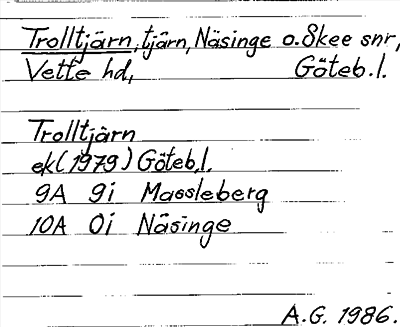 Trolltjärn, tjärn, Näsinge o. Skee snr,
Vette hd, Göteb. l.
Trolltjärn
ek (1979) Göteb. l.
9A 9i Massleberg
10A 0i Näsinge
A.G. 1986.